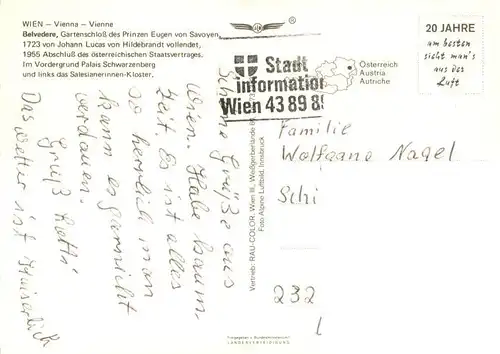 WIEN – Vienna – Vienne
Belvedere, Gartenschloß des Prinzen Eugen von Savoyen,
1723 von Johann Lucas von Hildebrandt vollendet,
1955 Abschluß des österreichischen Staatsvertrages.
Im Vordergrund Palais Schwarzenberg
und links das Salesianerinnen-Kloster.
Stadt
information
Wien 43 89 8
Österreich
Austria
Autriche
20 JAHRE
am besten
sicht man's
aus der
Luft
Schöne Grüße aus
Wien. Habe kaum
Zeit. Es ist alles
so herrlich man
kann es garnicht
verdauen.
Gruß
Das Wetter ist
Familie
Wolfgang Nagel
Schi
232
Vertrieb: RAU-COLOR, Wien III., Weißgerberlände
Foto Alpine Luftbild, Innsbruck
Freigegeben v. Bundesministerium f.
LANDESVERTEIDIGUNG